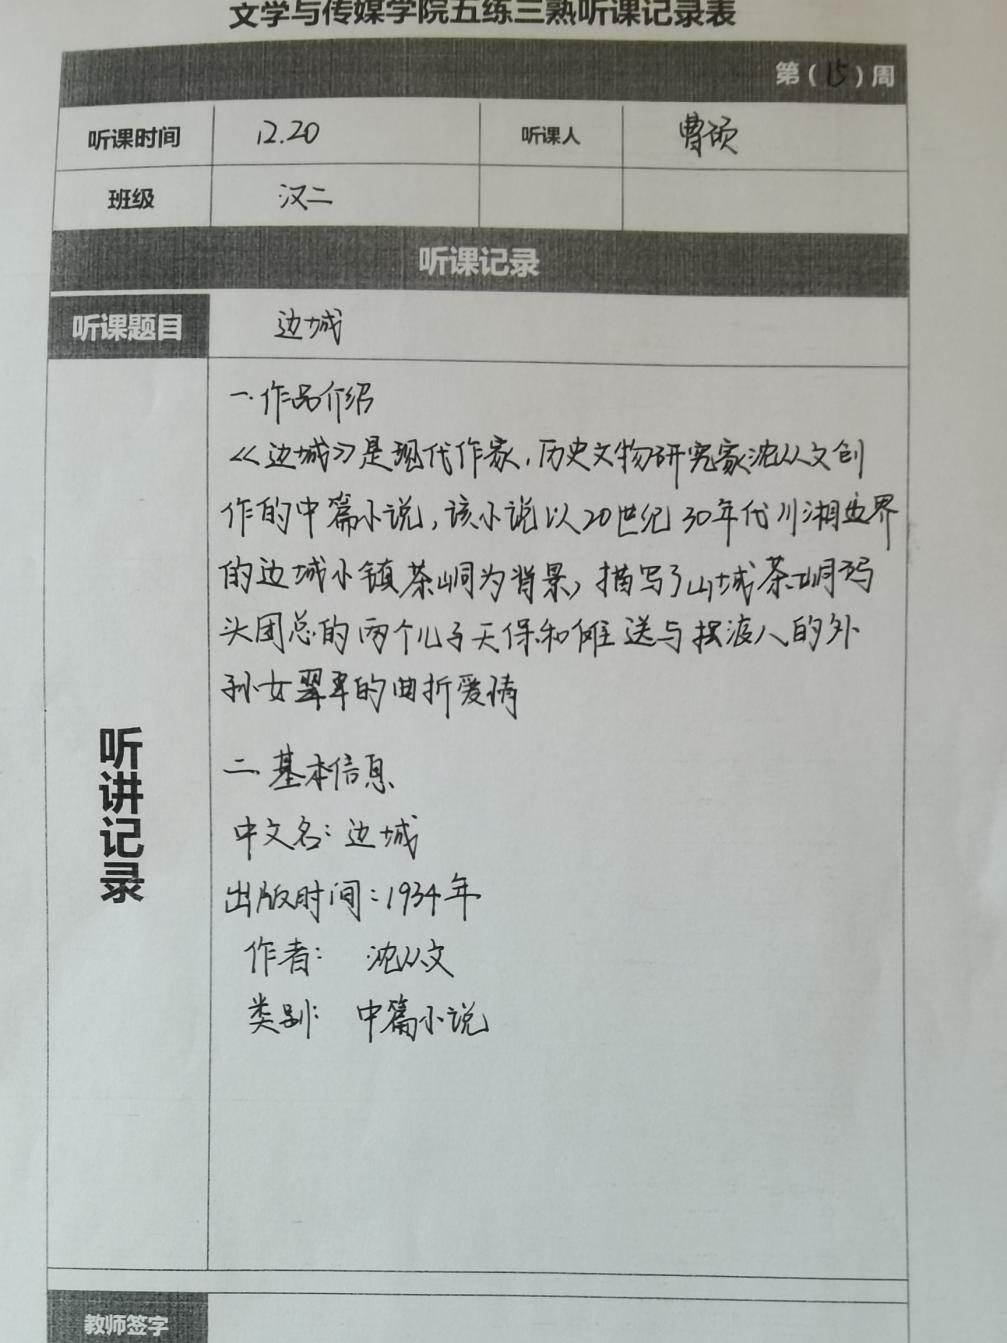 文学与传媒学院五练三熟听课记录表
第(15)周
听课时间 12.20 听课人 曹颂
班级 汉二
听课记录
听课题目 边城
听讲记录
一.作品介绍
《边城》是现代作家,历史文物研究家沈从文创
作的中篇小说,该小说以20世纪30年代川湘边界
的边城小镇茶峒为背景,描写了山城茶峒码
头团总的两个儿子天保和傩送与摆渡人的外
孙女翠翠的曲折爱情
二.基本信息
中文名:边城
出版时间:1934年
作者: 沈从文
类别: 中篇小说
教师签字